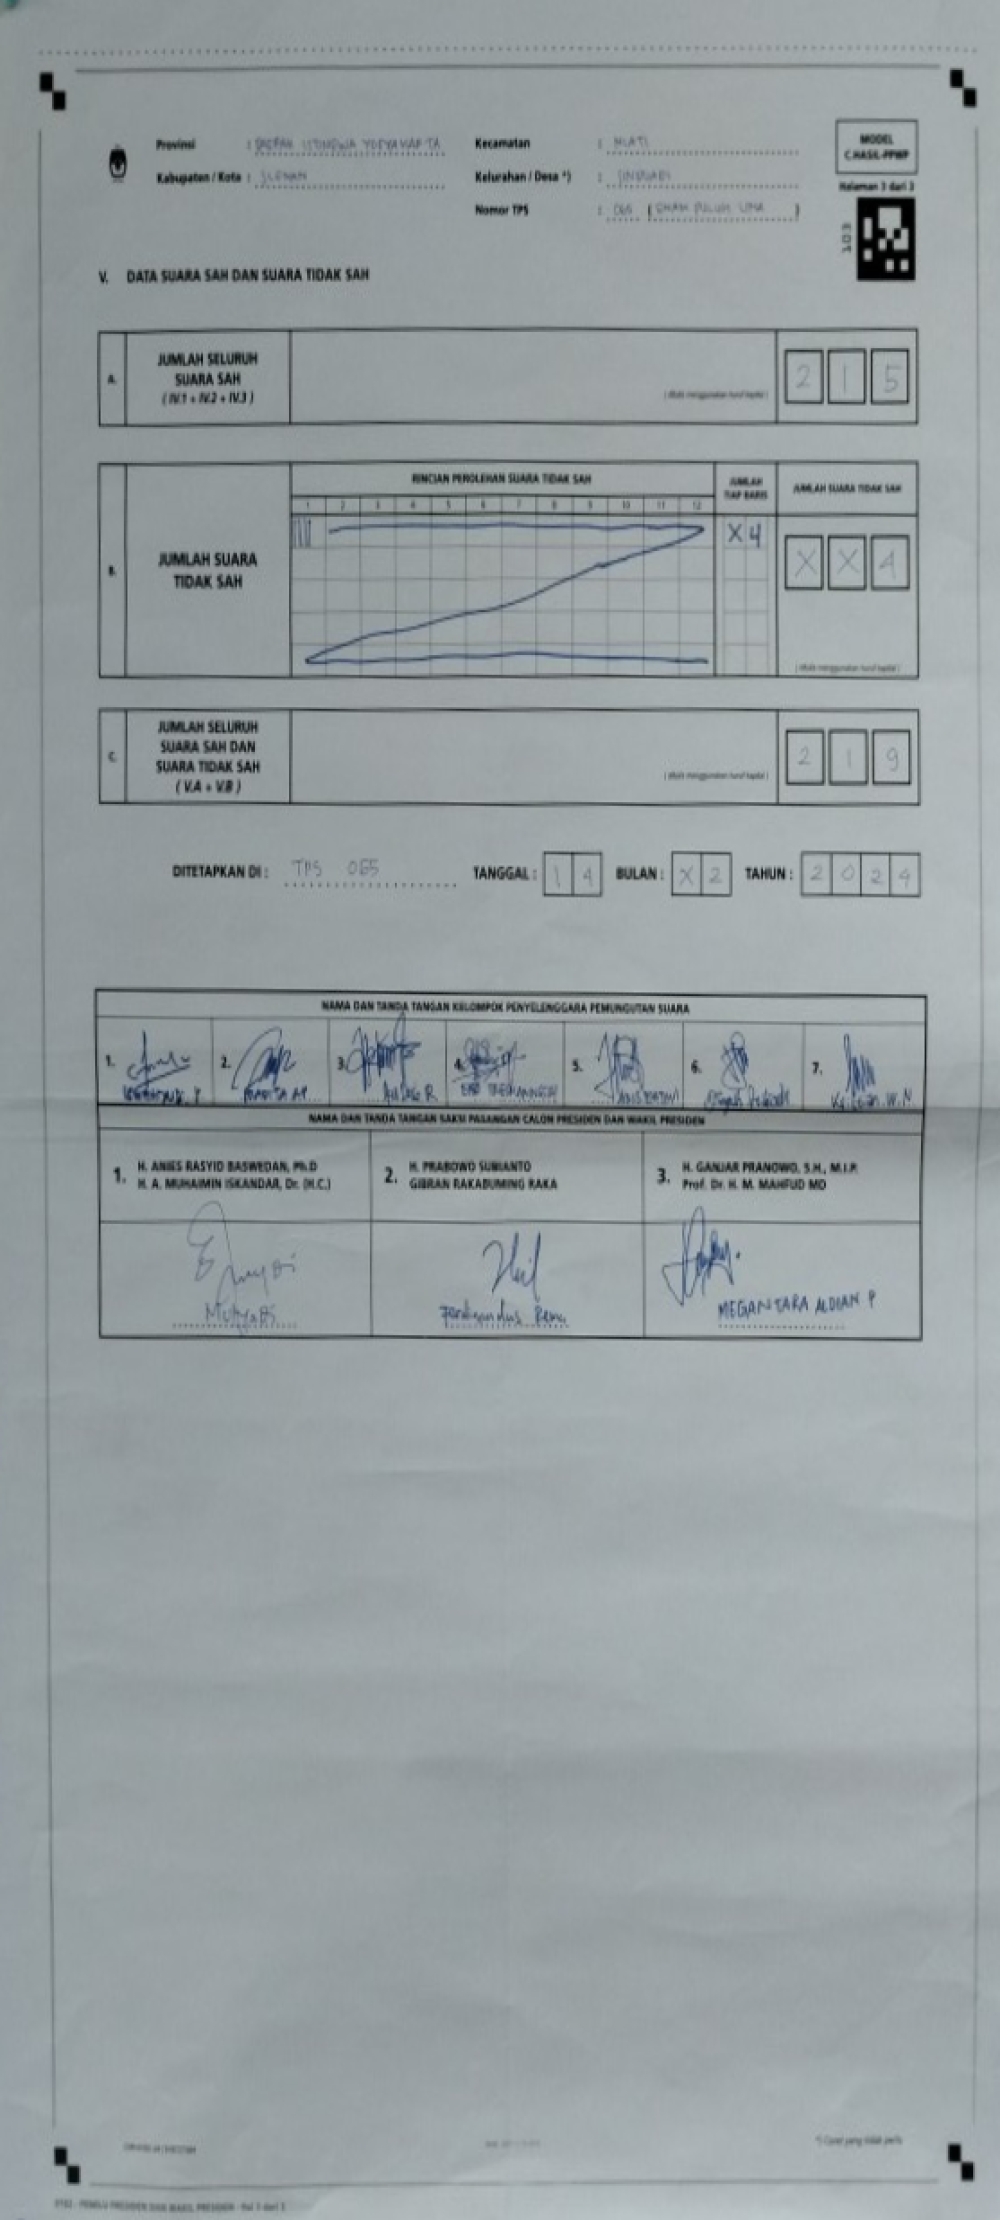 Provinsi : DAERAH ISTIMEWA YOGYAKARTA
Kabupaten / Kota : SLEMAN
Kecamatan : MLATI
Kelurahan / Desa *) : SINDUADI
Nomor TPS : 065 ( ENAM PULUH LIMA )
MODEL
C.HASIL-PPWP
Halaman 3 dari 3
103
V. DATA SUARA SAH DAN SUARA TIDAK SAH
A. JUMLAH SELURUH
SUARA SAH
( IV.1 + IV.2 + IV.3 )
( ditulis menggunakan huruf kapital )
2 1 5
B. JUMLAH SUARA
TIDAK SAH
RINCIAN PEROLEHAN SUARA TIDAK SAH
1 2 3 4 5 6 7 8 9 10 11 12
JUMLAH
TIAP BARIS
X 4
JUMLAH SUARA TIDAK SAH
X X 4
( ditulis menggunakan huruf kapital )
C. JUMLAH SELURUH
SUARA SAH DAN
SUARA TIDAK SAH
( V.A + V.B )
( ditulis menggunakan huruf kapital )
2 1 9
DITETAPKAN DI : TPS 065 TANGGAL : 1 4 BULAN : X 2 TAHUN : 2 0 2 4
NAMA DAN TANDA TANGAN KELOMPOK PENYELENGGARA PEMUNGUTAN SUARA
1. 2. 3. 4. 5. 6. 7.
NAMA DAN TANDA TANGAN SAKSI PASANGAN CALON PRESIDEN DAN WAKIL PRESIDEN
1. H. ANIES RASYID BASWEDAN, Ph.D
H. A. MUHAIMIN ISKANDAR, Dr. (H.C.)
2. H. PRABOWO SUBIANTO
GIBRAN RAKABUMING RAKA
3. H. GANJAR PRANOWO, S.H., M.I.P.
Prof. Dr. H. M. MAHFUD MD
MEGANTARA ALDIAN P
*) Coret yang tidak perlu
PEMILU PRESIDEN DAN WAKIL PRESIDEN - Hal 3 dari 3